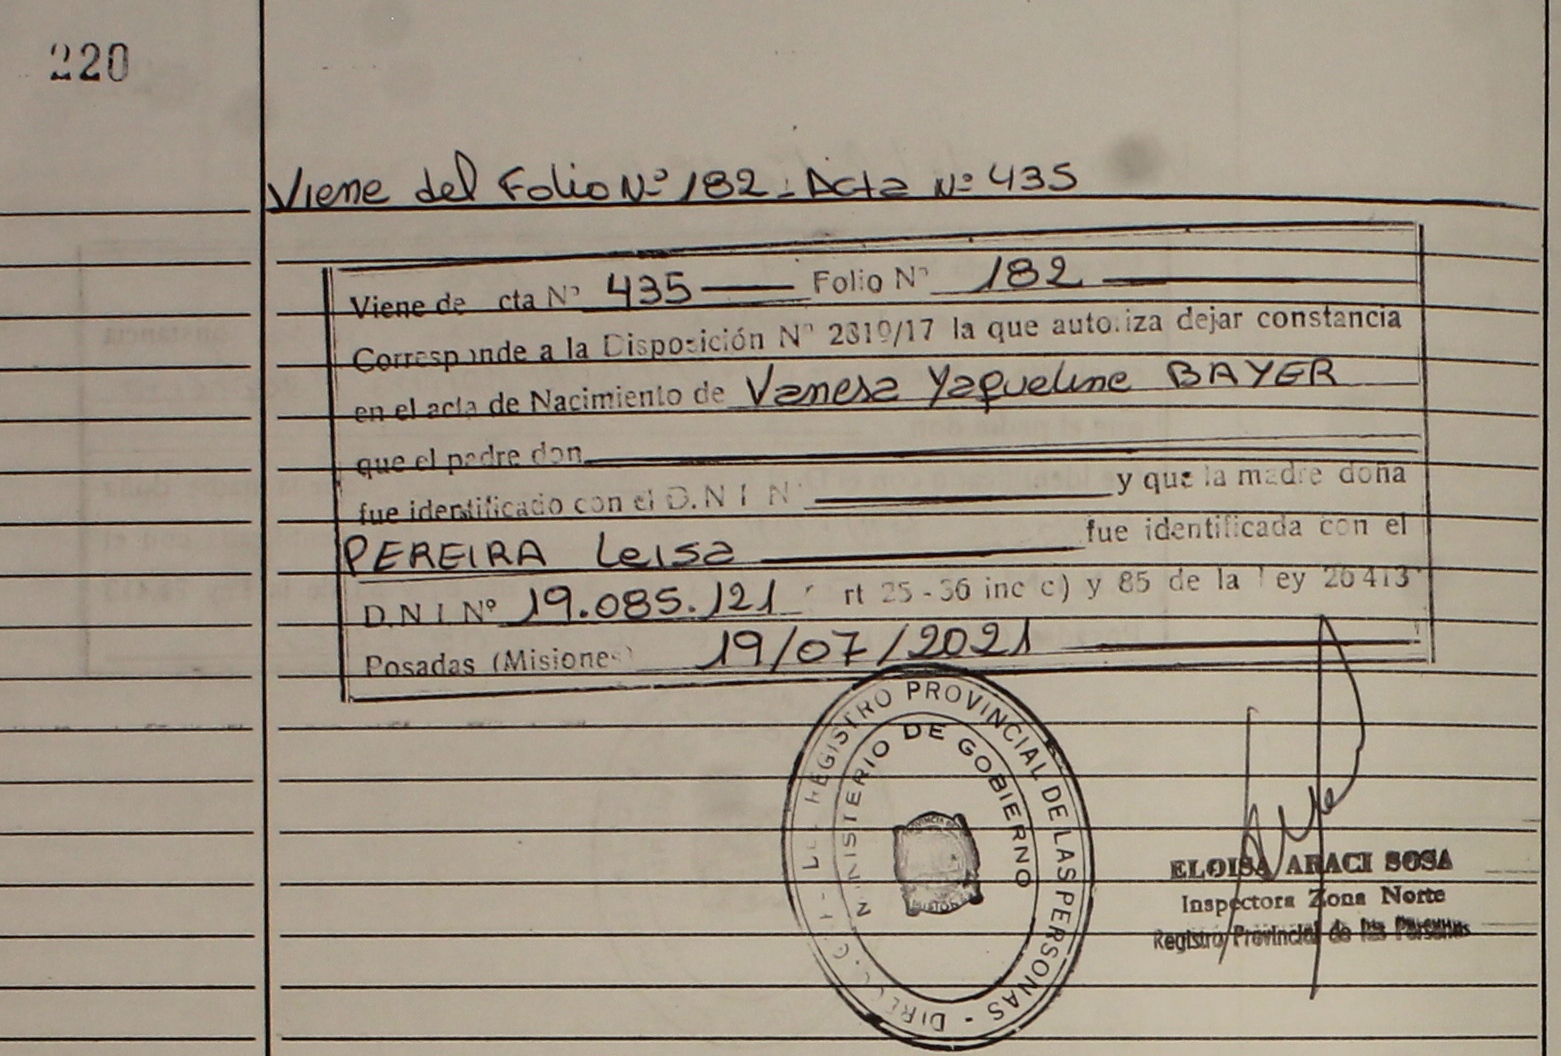 220
Viene del Folio Nº 182 - Acta Nº 435
Viene de cta Nº 435 Folio Nº 182
Corresponde a la Disposición Nº 2819/17 la que autoriza dejar constancia
en el acta de Nacimiento de Vanesa Yaqueline BAYER
que el padre don
fue identificado con el D.N I N y que la madre doña
PEREIRA Leisa fue identificada con el
D.N I Nº 19.085.121 rt 25 - 36 inc c) y 85 de la ley 26413
Posadas (Misiones) 19/07/2021
REGISTRO PROVINCIAL DE LAS PERSONAS -
MINISTERIO DE GOBIERNO
ELOISA ARACI SOSA
Inspectora Zona Norte
Registro Provincial de las Personas